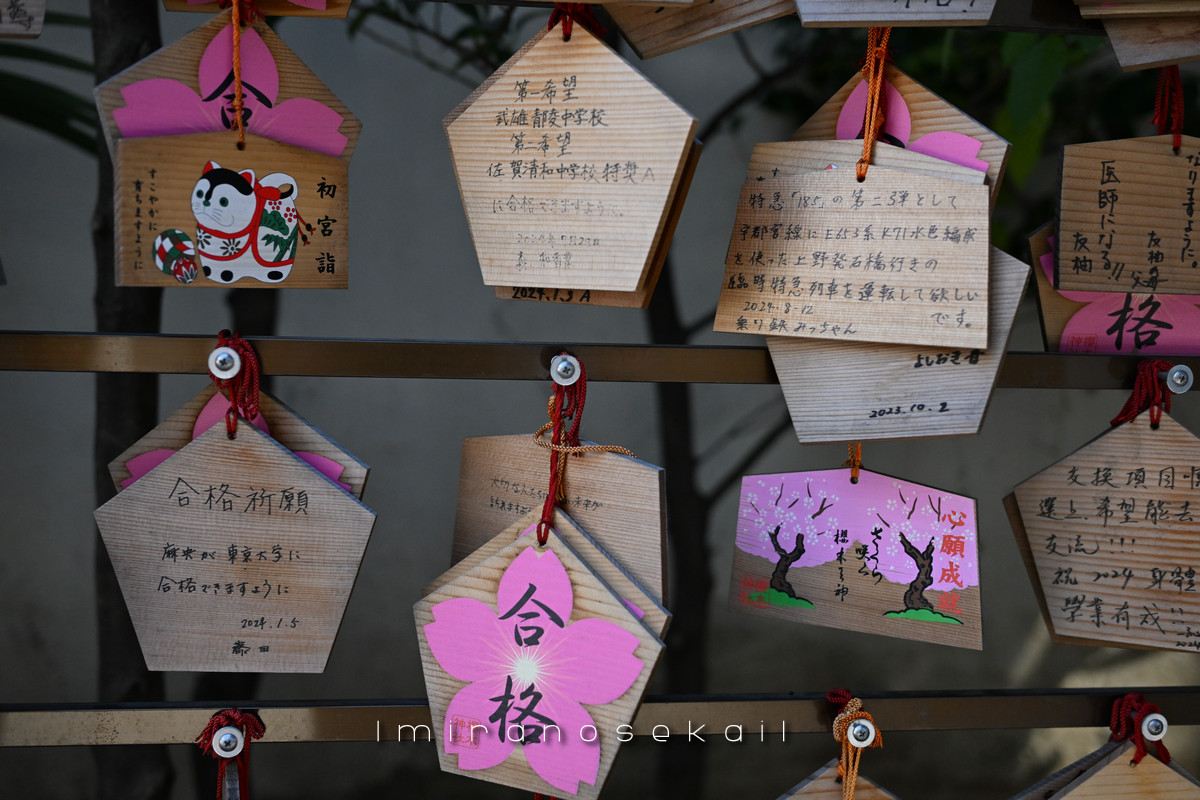 合
初宮詣
すこやかに
育ちますように
第一希望
武雄青陵中学校
第二希望
佐賀清和中学校 特奨A
に合格できますように。
2024.1.3 A
特急「185」の第二弾として
宇都宮線にE653系K71水色編成
を使った上野発石橋行きの
臨時特急列車を運転して欲しい
です。
2024.8.12
乗り鉄みっちゃん
よしおき君
2023.10.2
なりますように。
医師になる!!
友柚
友柚の
父母
合格
合格祈願
麻央が東京大学に
合格できますように
2024.1.5
合格
心願成就
さくら
咲く
櫻木天神
交換項目順
選上希望能去
交流!!!
祝 2024 身體
學業有成!!
2024
Imiranosekail